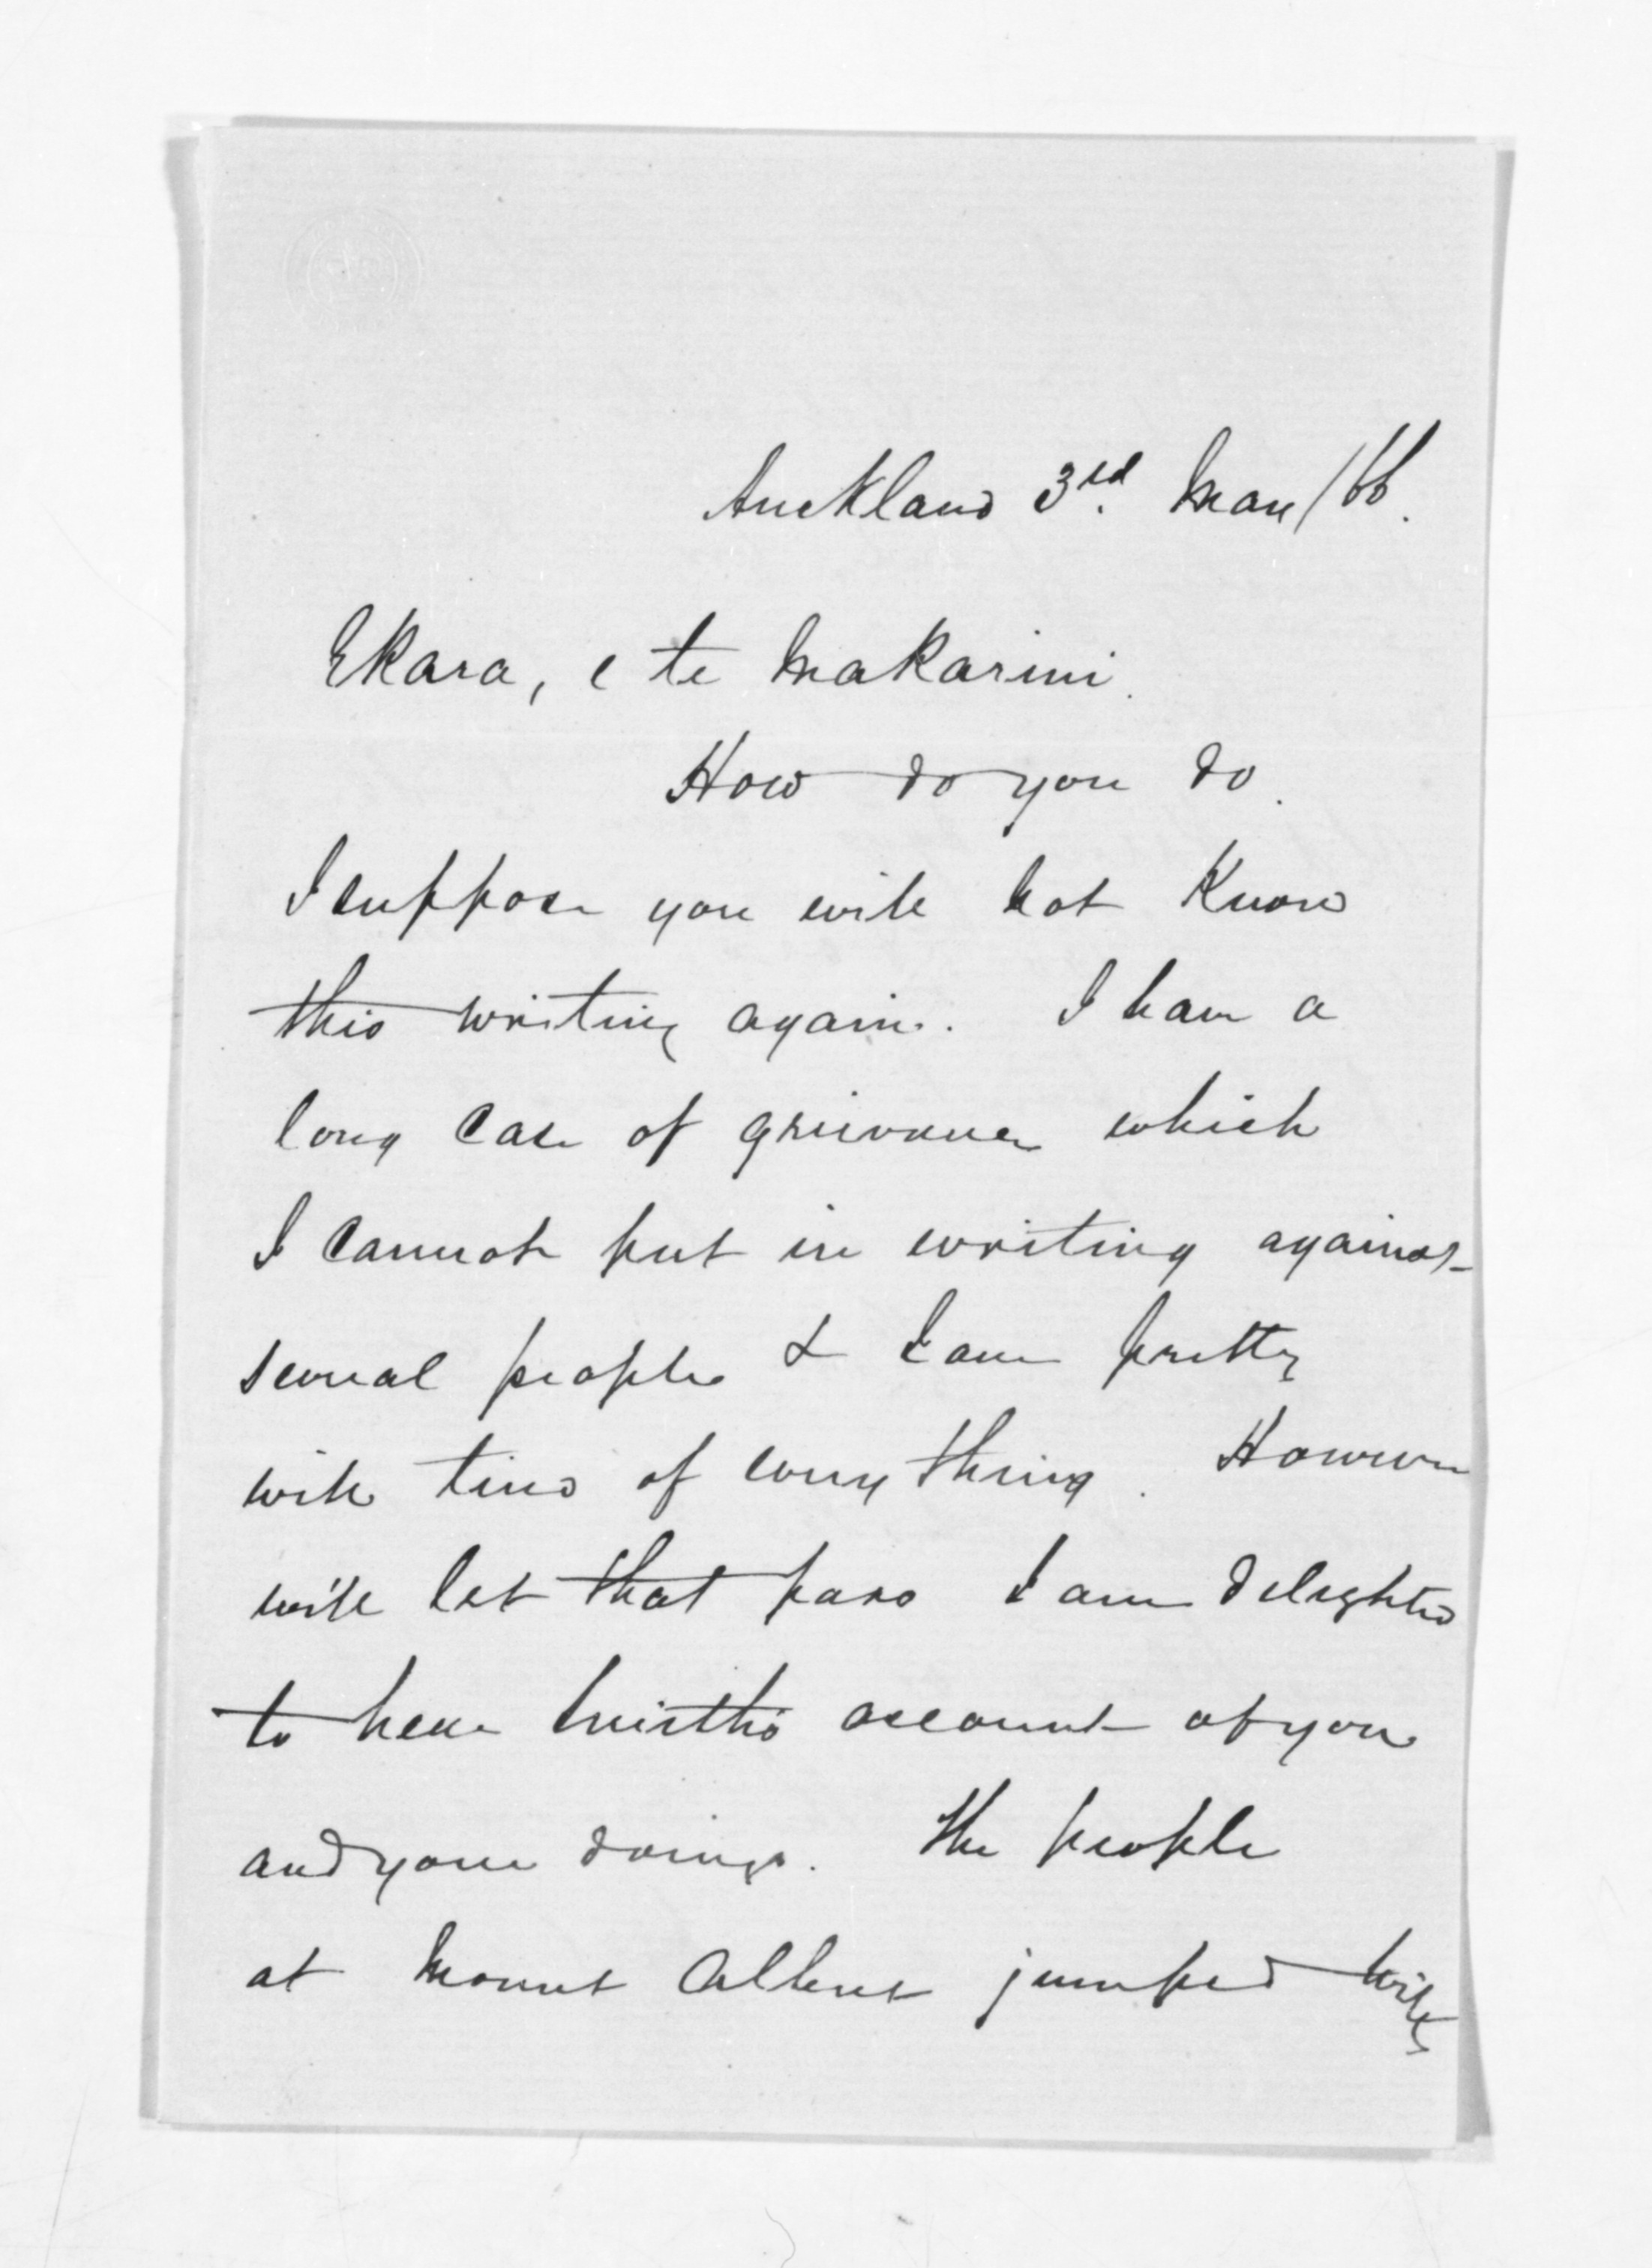 Auckland 3rd. May/66.
Ekara, e te Makarini.
How do you do.
I suppose you will not know
this writing again. I have a
long case of grievance which
I cannot put in writing against
several people & I am pretty
well tired of every thing. However
will let that pass I am delighted
to hear account of you
and your doings. The people
at Mount Albert jumped with